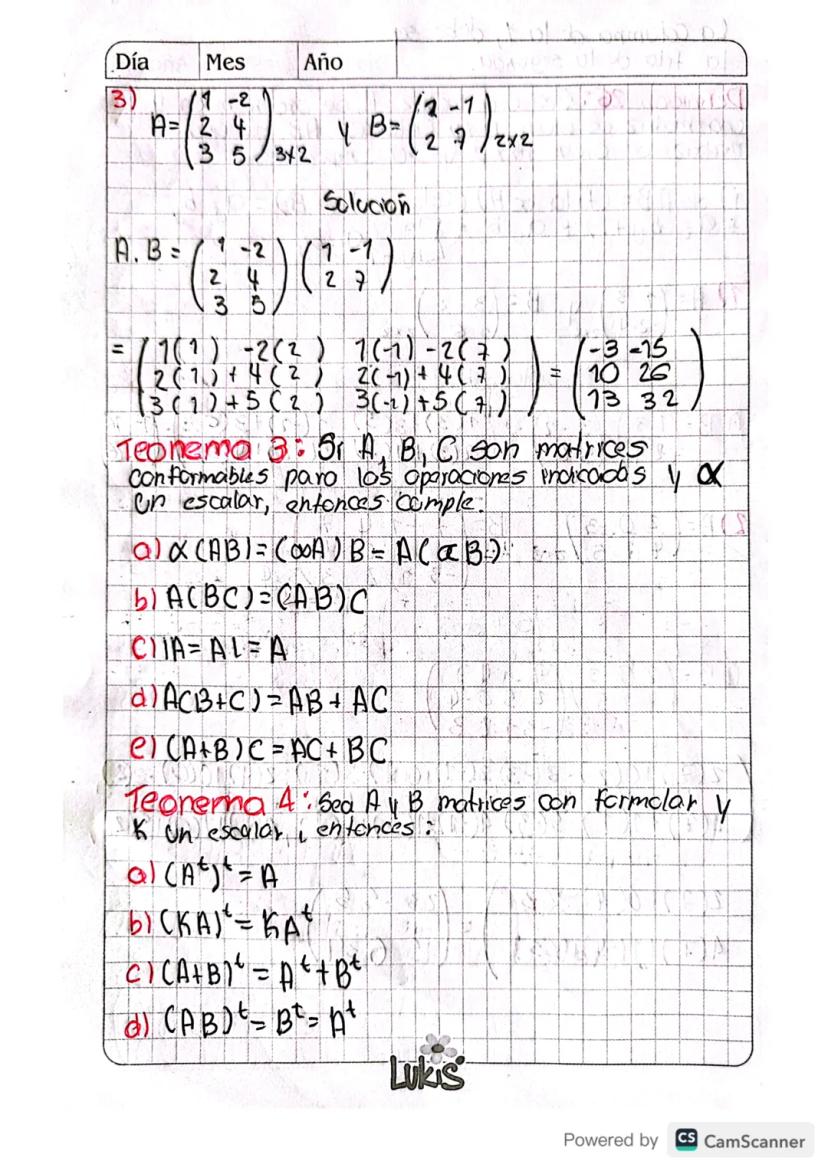 Día Mes Año
3) A=(1 -2
2 4
3 5)3x2 y B=(1 -1
2 7)2x2
Solución
A.B=(1 -2
2 4
3 5)(1 -1
2 7)
=(1(1) -2(2) 1(-1)-2(7)
2(1)+4(2) 2(-1)+4(7)
3(1)+5(2) 3(-1)+5(7))=(-3 -15
10 26
13 32)
Teorema 3: Si A, B, C son matrices
conformables para los operaciones indicadas y α
un escalar, entonces cumple:
a) α(AB)=(αA)B=A(αB)
b) A(BC)=(AB)C
C) IA=AI=A
d) A(B+C)=AB+AC
e) (A+B)C=AC+BC
Teorema 4: Sea A y B matrices con formolar y
K un escalar, entonces:
a) (Aᵗ)ᵗ=A
b) (KA)ᵗ=KAᵗ
c) (A+B)ᵗ=Aᵗ+Bᵗ
d) (AB)ᵗ=Bᵗ=Aᵗ
Lukis
Powered by CS CamScanner